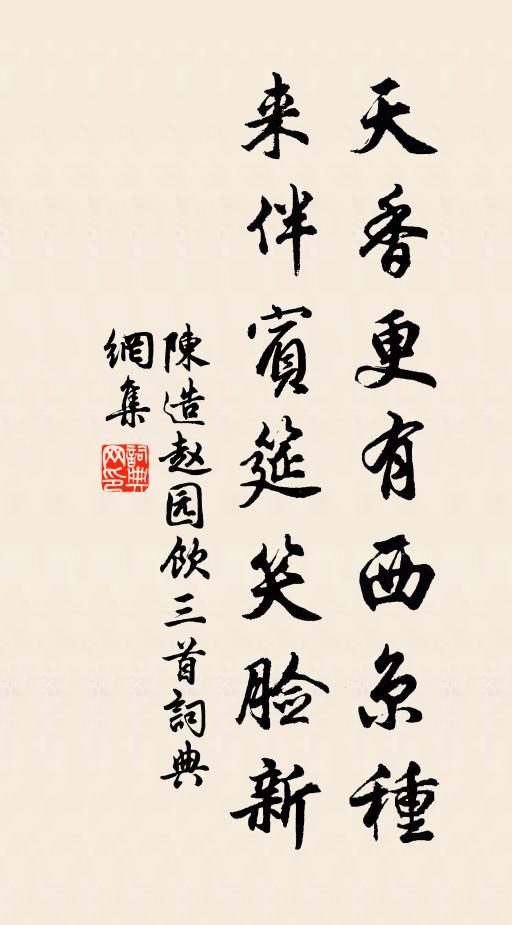 天香更有西京種
来伴賓筵笑脸新
陳造赵园饮三首詞典
網集
詞典網印